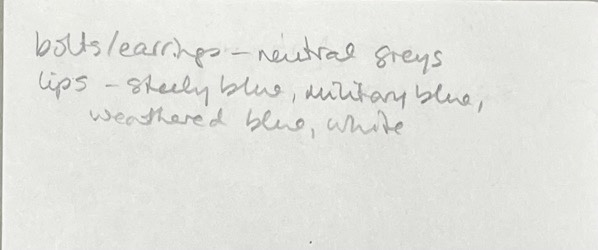 bolts/earrings - neutral greys
lips - steely blue, military blue,
weathered blue, white